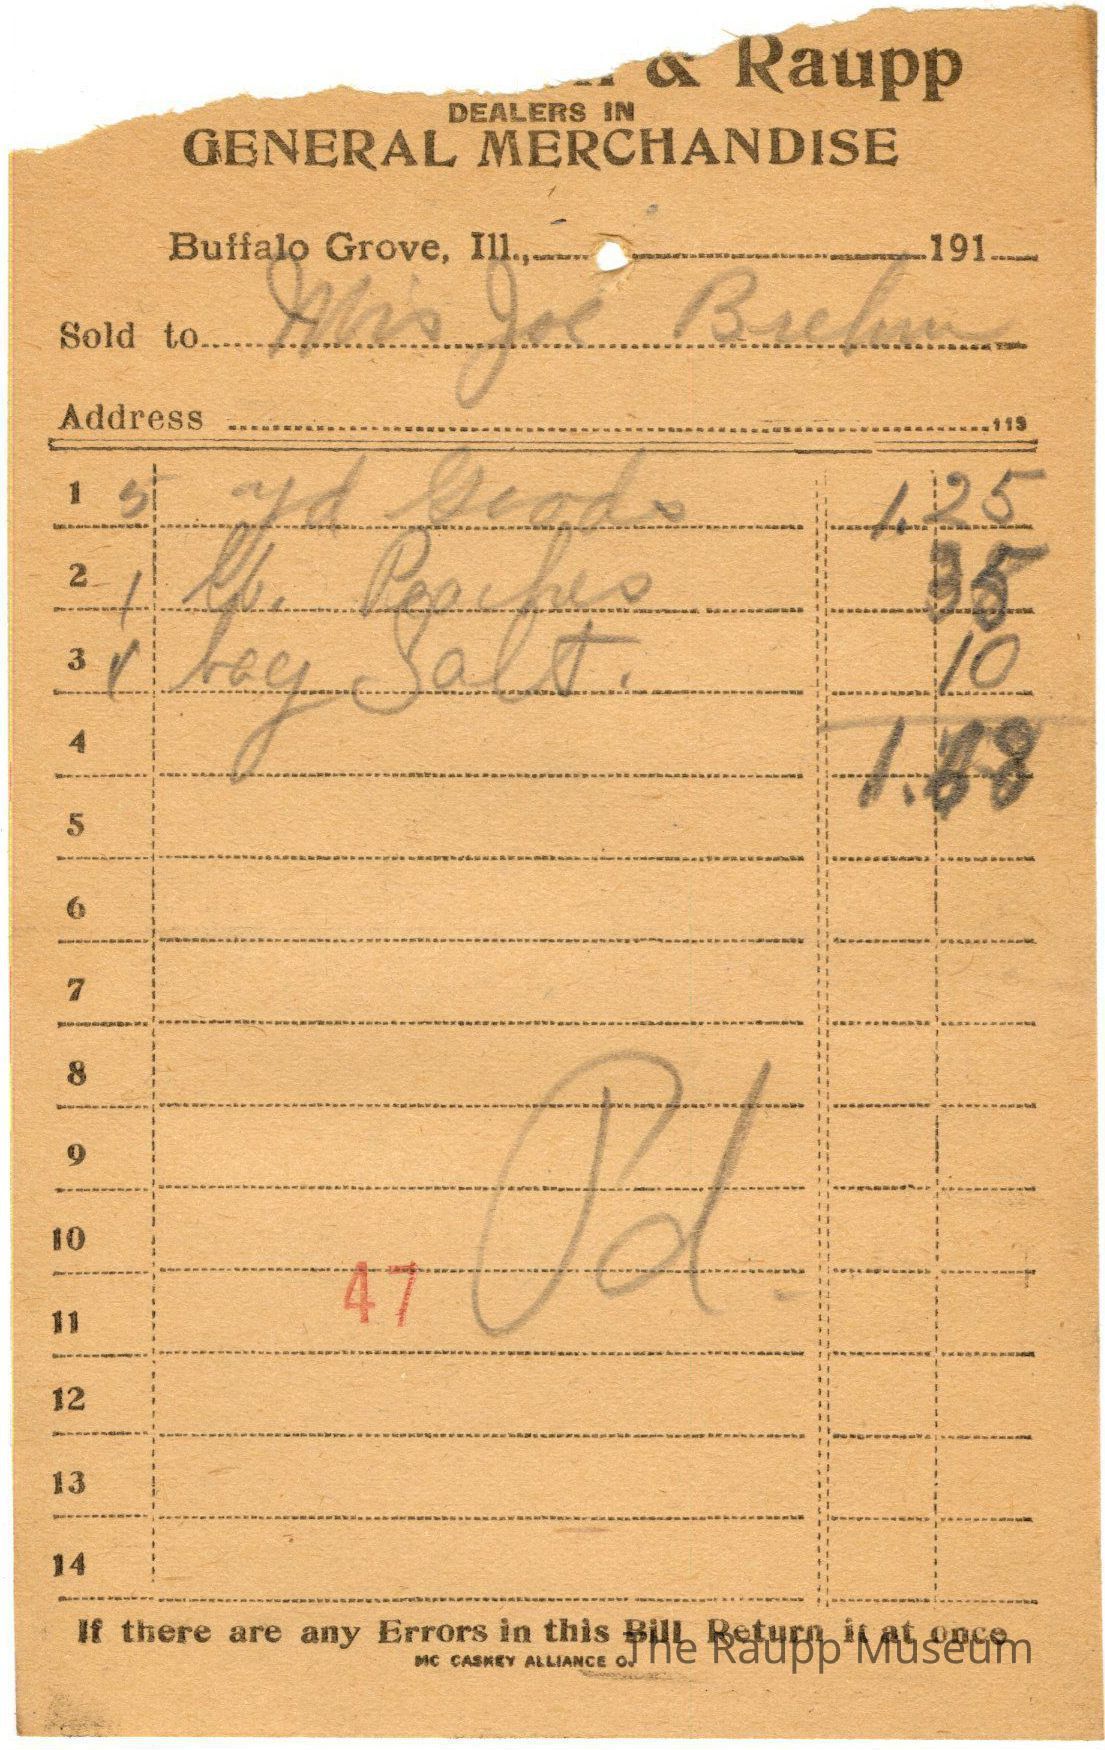 & Raupp
DEALERS IN
GENERAL MERCHANDISE
Buffalo Grove, Ill., 191
Sold to Mrs Joe Brehm
Address 113
1 5 yd Goods 1.25
2 1 lb. Peaches
3 1 bag Salt. 10
4
5
6
7
8
9
Pd.
10
47
11
12
13
14
If there are any Errors in this Bill Return it at once
MC CASKEY ALLIANCE O.
The Raupp Museum